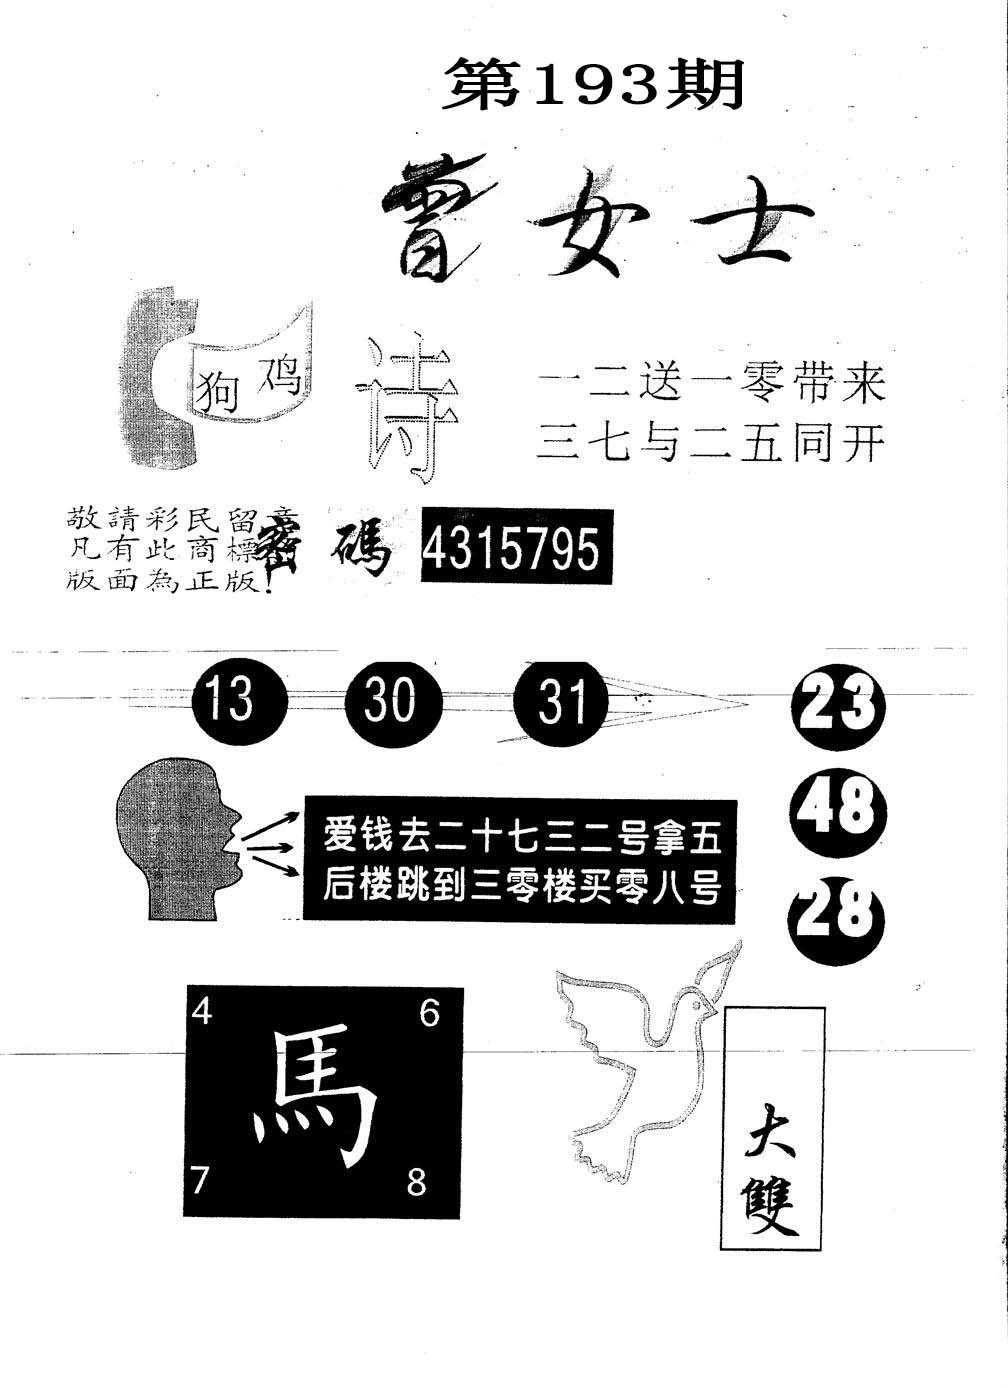 第193期
曾女士
狗 鸡
诗
一二送一零带来
三七与二五同开
敬請彩民留意
凡有此商標
版面為正版!
密碼 4315795
13 30 31 23
48
爱钱去二十七三二号拿五
后楼跳到三零楼买零八号
28
4 6
馬
7 8
大雙